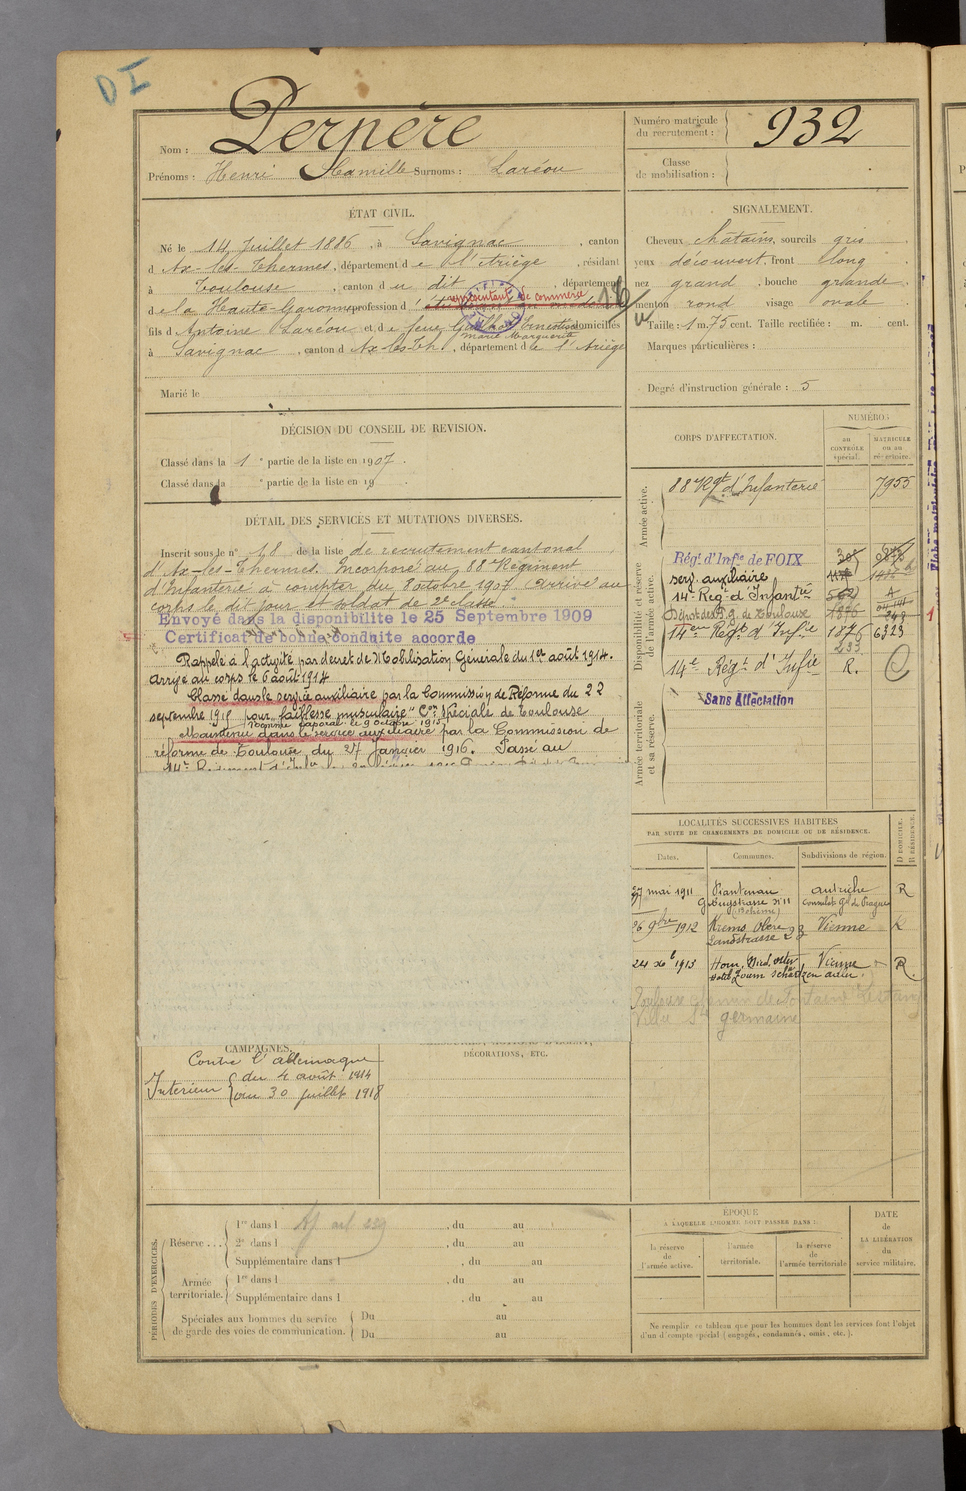 DI
Nom : Derpère
Prénoms : Henri Camille Surnoms : Laréou
Numéro matricule du recrutement : 932
Classe de mobilisation :
ÉTAT CIVIL.
Né le 14 Juillet 1886, à Savignac, canton
d'Ax-les-Thermes, département de l'Ariège, résidant
à Toulouse, canton du dit, département
de la Haute-Garonne profession d'
représentant de commerce
fils d'Antoine Laréou et de feue Ernestine domiciliés
Marie Marguerite
à Savignac, canton d'Ax-les-Th, département de l'Ariège
Marié le
SIGNALEMENT.
Cheveux châtains, sourcils gris
yeux découvert, front long
nez grand, bouche grande
menton rond visage ovale
Taille : 1 m. 75 cent. Taille rectifiée : m. cent.
Marques particulières :
Degré d'instruction générale : 5
DÉCISION DU CONSEIL DE REVISION.
Classé dans la 1e partie de la liste en 1907.
Classé dans la e partie de la liste en 19
DÉTAIL DES SERVICES ET MUTATIONS DIVERSES.
Inscrit sous le n° 18 de la liste de recrutement cantonal
d'Ax-les-Thermes. Incorporé au 88e Régiment
d'Infanterie à compter du 8 octobre 1907. Arrivé au
corps le dit jour et soldat de 2e classe
Envoyé dans la disponibilité le 25 Septembre 1909
Certificat de bonne conduite accordé
Rappelé à l'activité par decret de Mobilisation Générale du 1er août 1914.
Arrivé au corps le 6 août 1914
Classé dans le service auxiliaire par la Commission de Réforme du 22
septembre 1915 pour "faiblesse musculaire" Con Spéciale de Toulouse
Nommé caporal le 9 octobre 1915
Maintenu dans le service auxiliaire par la Commission de
réforme de Toulouse du 27 Janvier 1916. Passé au
CORPS D'AFFECTATION.
NUMÉROS
au CONTRÔLE spécial.
MATRICULE ou au répertoire.
Armée active.
88e Rgt d'Infanterie 7955
Disponibilité et réserve de l'armée active.
Régt d'Infie de FOIX
serv. auxiliaire
14e Regt d'Infantrie
Dépôt des P. g. de Toulouse 1876
14eme Régt d'Infie 1876 6323
233
14e Régt d'Infie R.
Armée territoriale et sa réserve.
Sans Affectation
LOCALITÉS SUCCESSIVES HABITÉES
PAR SUITE DE CHANGEMENTS DE DOMICILE OU DE RÉSIDENCE.
Dates. Communes. Subdivisions de région. D DOMICILE. R RÉSIDENCE.
27 mai 1911 Autriche R
Consulat Gl de Prague
(Bohème)
26 9bre 1912 Krems Obere Vienne R
Landstrasse
24 Xbre 1913 Horn, Vienne R.
Toulouse chemin de Fontaine Lestang
Villa Ste germaine
CAMPAGNES.
Contre l'allemagne
Intérieur du 4 août 1914
au 30 juillet 1918
DÉCORATIONS, ETC.
PÉRIODES D'EXERCICES.
Réserve ... 1re dans l , du au
2e dans l , du au
Supplémentaire dans l , du au
Armée territoriale. 1re dans l , du au
Supplémentaire dans l , du au
Spéciales aux hommes du service de garde des voies de communication. Du au
Du au
ÉPOQUE
À LAQUELLE L'HOMME DOIT PASSER DANS :
la réserve de l'armée active.
l'armée territoriale.
la réserve de l'armée territoriale
DATE de LA LIBÉRATION du service militaire.
Ne remplir ce tableau que pour les hommes dont les services font l'objet
d'un décompte spécial (engagés, condamnés, omis, etc.).